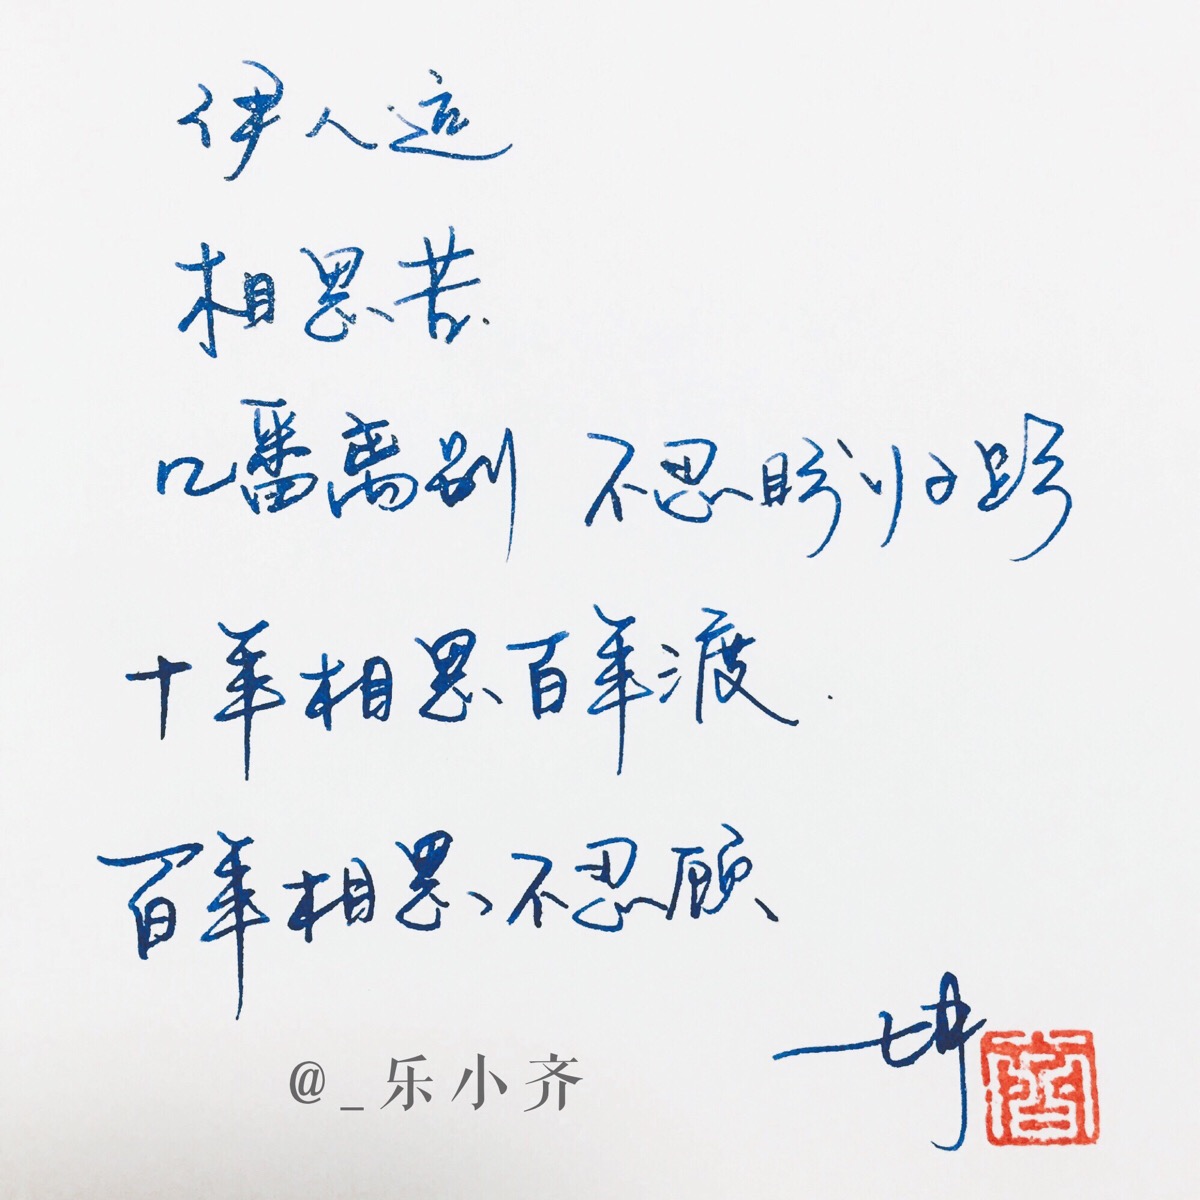 伊人远
相思苦
几番离别 不忍盼归路
十年相思百年渡
百年相思不忍顾
@_乐小齐